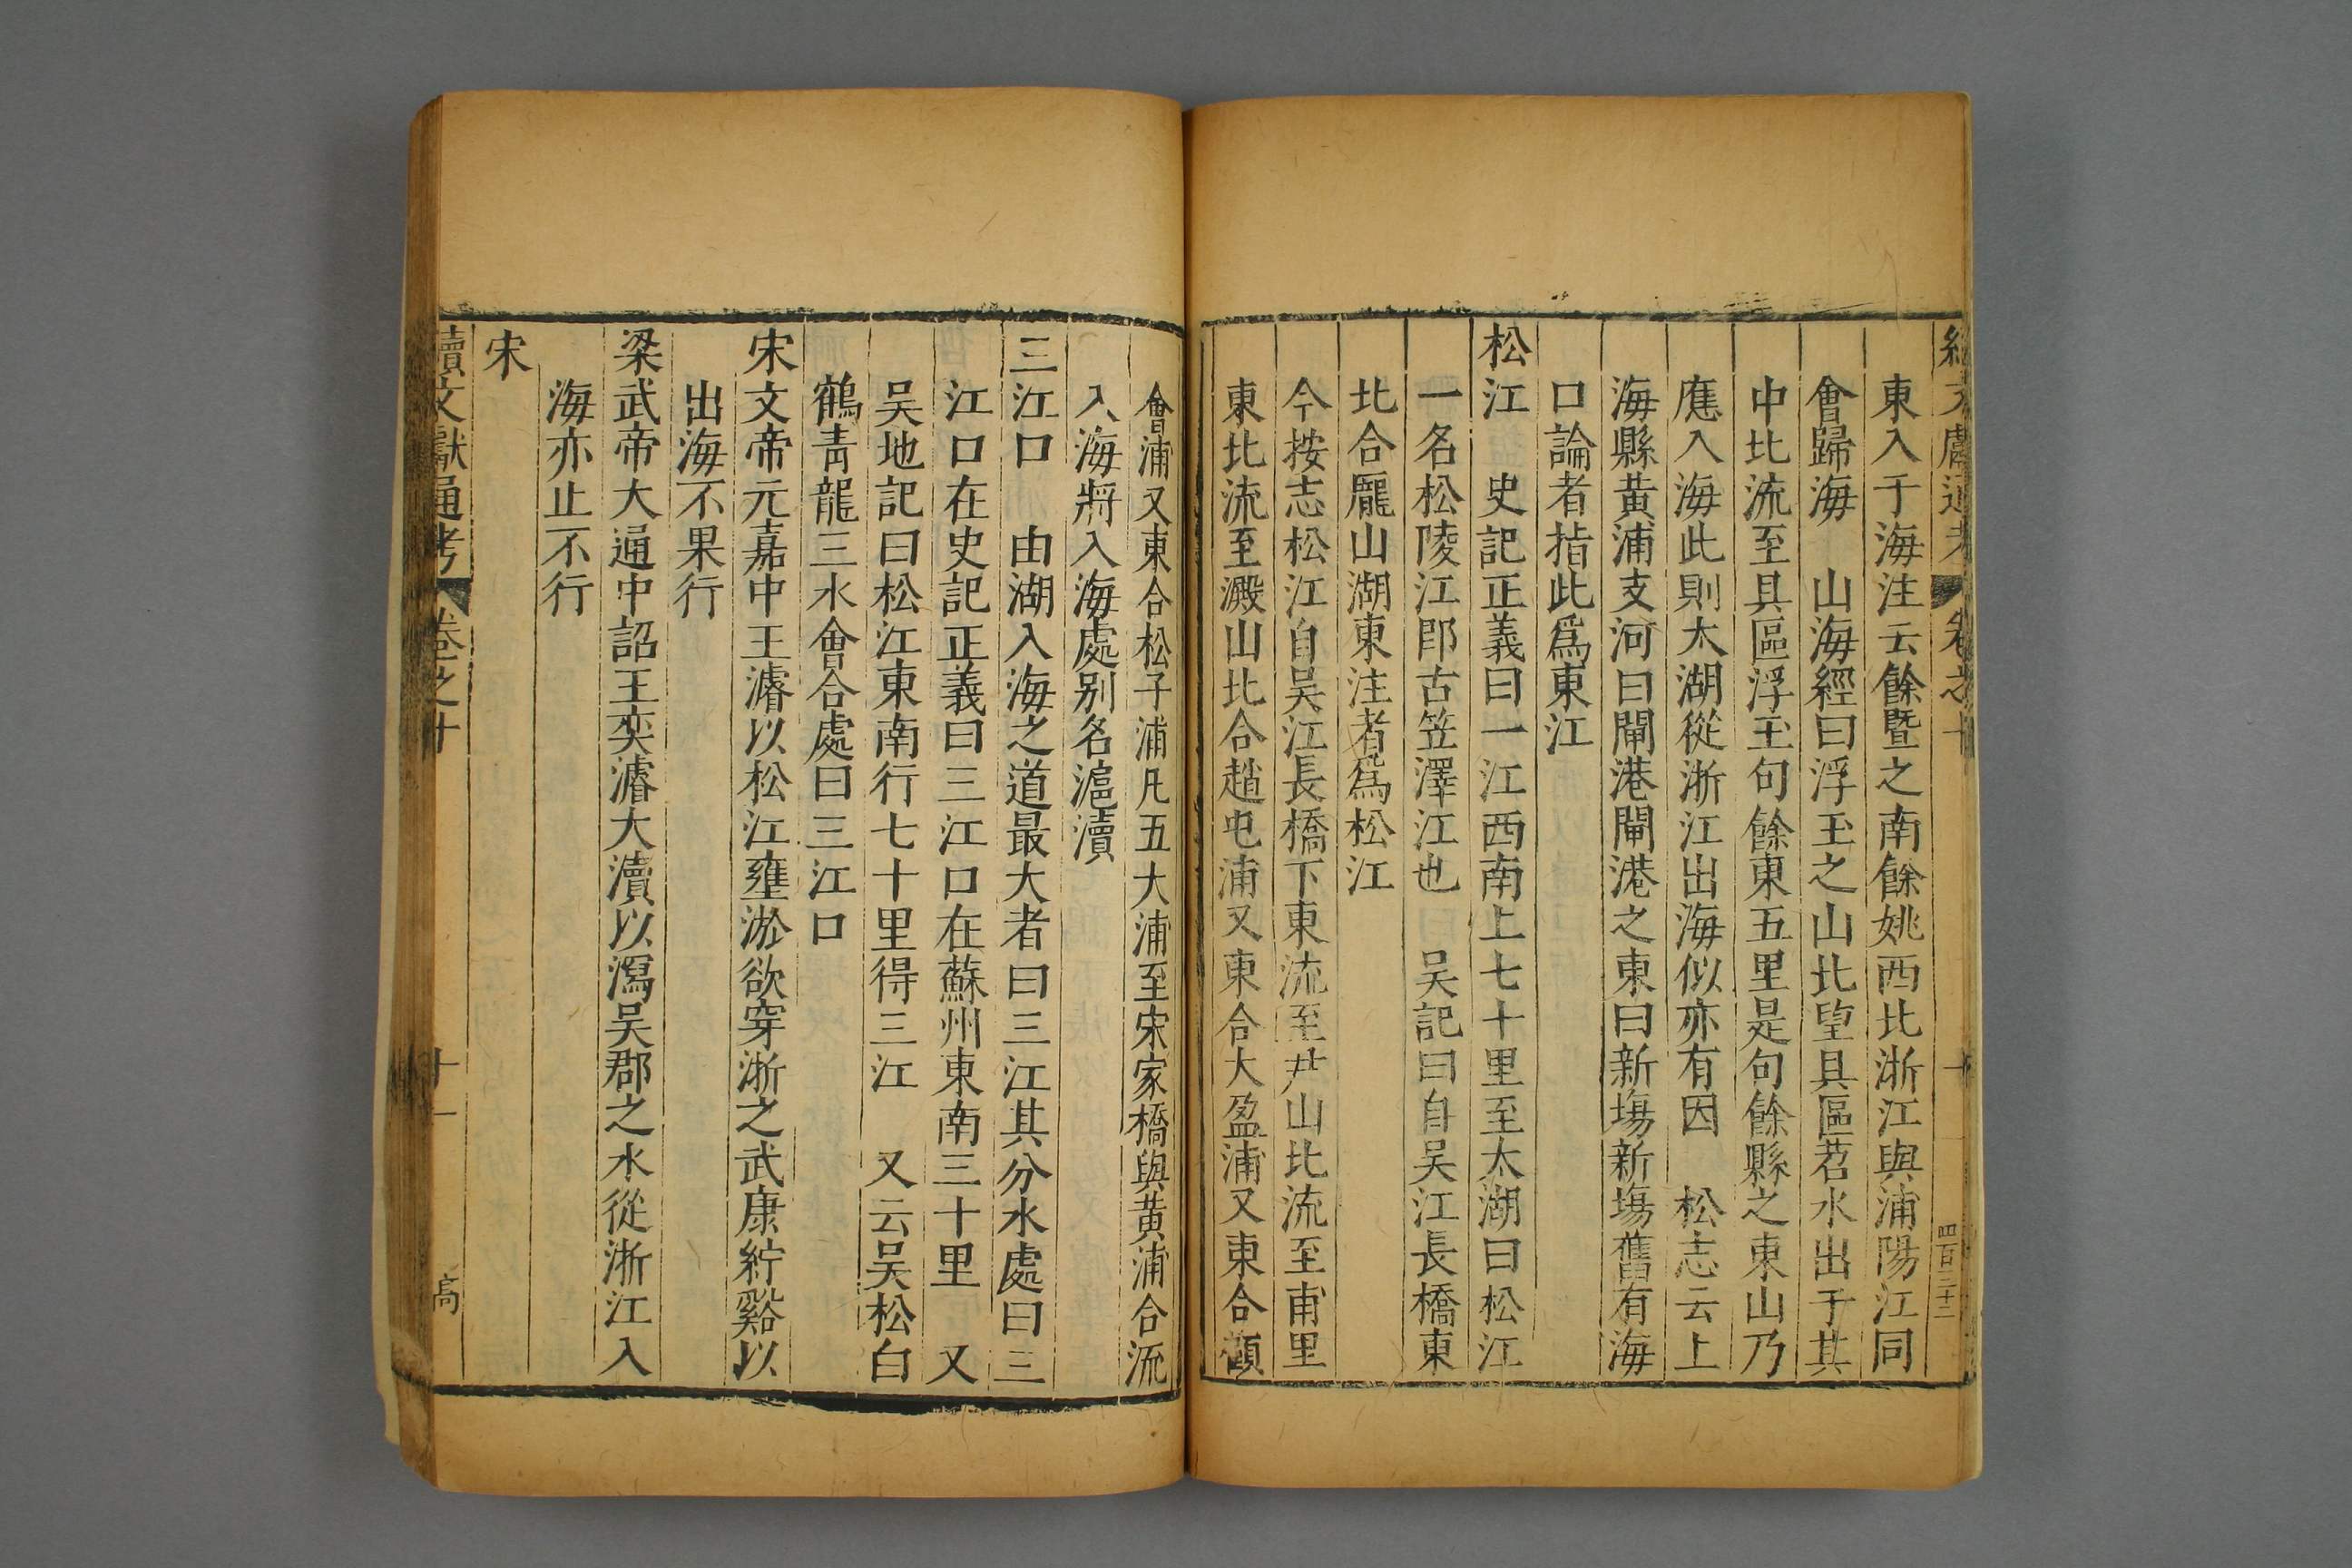 續文獻通考 卷之十 四百三十二
東入于海注云餘暨之南餘姚西北浙江與浦陽江同
會歸海 山海經曰浮玉之山北望具區苕水出于其
中北流至具區浮玉句餘東五里是句餘縣之東山乃
應入海此則太湖從浙江出海似亦有因 松志云上
海縣黃浦支河曰閘港閘港之東曰新塲新塲舊有海
口論者指此爲東江
松江 史記正義曰一江西南上七十里至太湖曰松江
一名松陵江即古笠澤江也 吴記曰自吴江長橋東
北合龎山湖東注者爲松江
今按志松江自吴江長橋下東流至尹山北流至甫里
東北流至澱山北合趙屯浦又東合大盈浦又東合顧
會浦又東合松子浦凡五大浦至宋家橋與黃浦合流
入海將入海處别名滬瀆
三江口 由湖入海之道最大者曰三江其分水處曰三
江口在史記正義曰三江口在蘇州東南三十里 又
吴地記曰松江東南行七十里得三江 又云吴松白
鶴青龍三水會合處曰三江口
宋文帝元嘉中王濬以松江壅淤欲穿浙之武康紵谿以
出海不果行
梁武帝大通中詔王奕濬大瀆以瀉吴郡之水從浙江入
海亦止不行
宋
續文獻通考 卷之十 十一 高